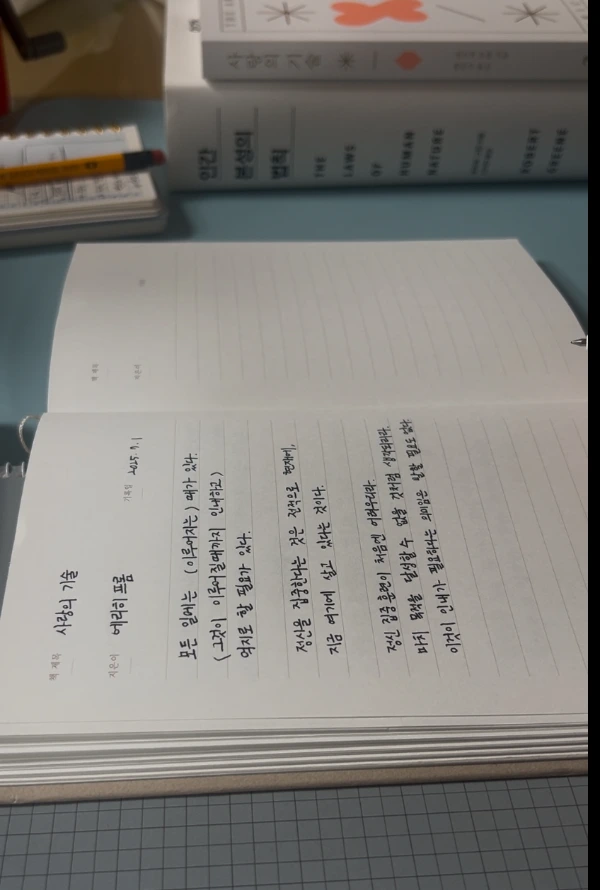 사랑의 기술
인간 본성의 법칙
THE LAWS OF HUMAN NATURE
ROBERT GREENE
책 제목
지은이
책 제목 사랑의 기술
기록일 2025. 9. 1
지은이 에리히 프롬
모든 일에는 (이루어지는) 때가 있다.
(그것이 이루어질때까지 인내하고)
억지로 할 필요가 있다.
정신을 집중한다는 것은 전적으로 현재에,
지금 여기에 살고 있다는 것이다.
정신 집중 훈련이 처음엔 어려우리라.
마치 목적을 달성할 수 없을 것처럼 생각되리라.
이것이 인내가 필요하다는 의미임은 말할 필요도 없다